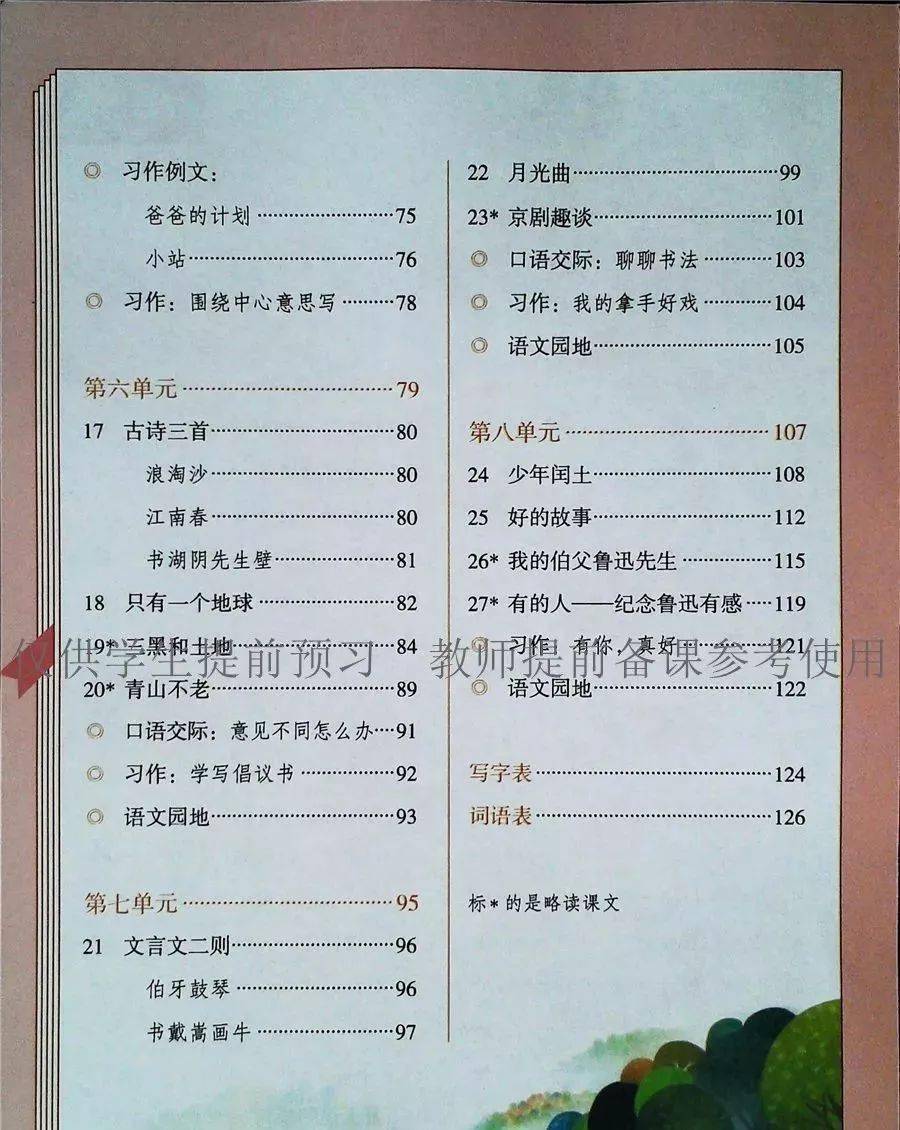 ◎ 习作例文：
爸爸的计划 ……………………75
小站……………………………76
◎ 习作：围绕中心意思写 ………78
第六单元 ………………………………79
17 古诗三首…………………………80
浪淘沙…………………………80
江南春…………………………80
书湖阴先生壁…………………81
18 只有一个地球 ……………………82
19* 三黑和土地 ………………………84
20* 青山不老…………………………89
◎ 口语交际：意见不同怎么办…91
◎ 习作：学写倡议书 ……………92
◎ 语文园地…………………………93
第七单元 ………………………………95
21 文言文二则………………………96
伯牙鼓琴………………………96
书戴嵩画牛 ……………………97
22 月光曲……………………………99
23* 京剧趣谈…………………………101
◎ 口语交际：聊聊书法 …………103
◎ 习作：我的拿手好戏 …………104
◎ 语文园地…………………………105
第八单元 ………………………………107
24 少年闰土…………………………108
25 好的故事…………………………112
26* 我的伯父鲁迅先生 ……………115
27* 有的人——纪念鲁迅有感 ……119
◎ 习作：有你，真好 ……………121
◎ 语文园地…………………………122
写字表 …………………………………124
词语表 …………………………………126
标*的是略读课文
仅供学生提前预习 教师提前备课参考使用